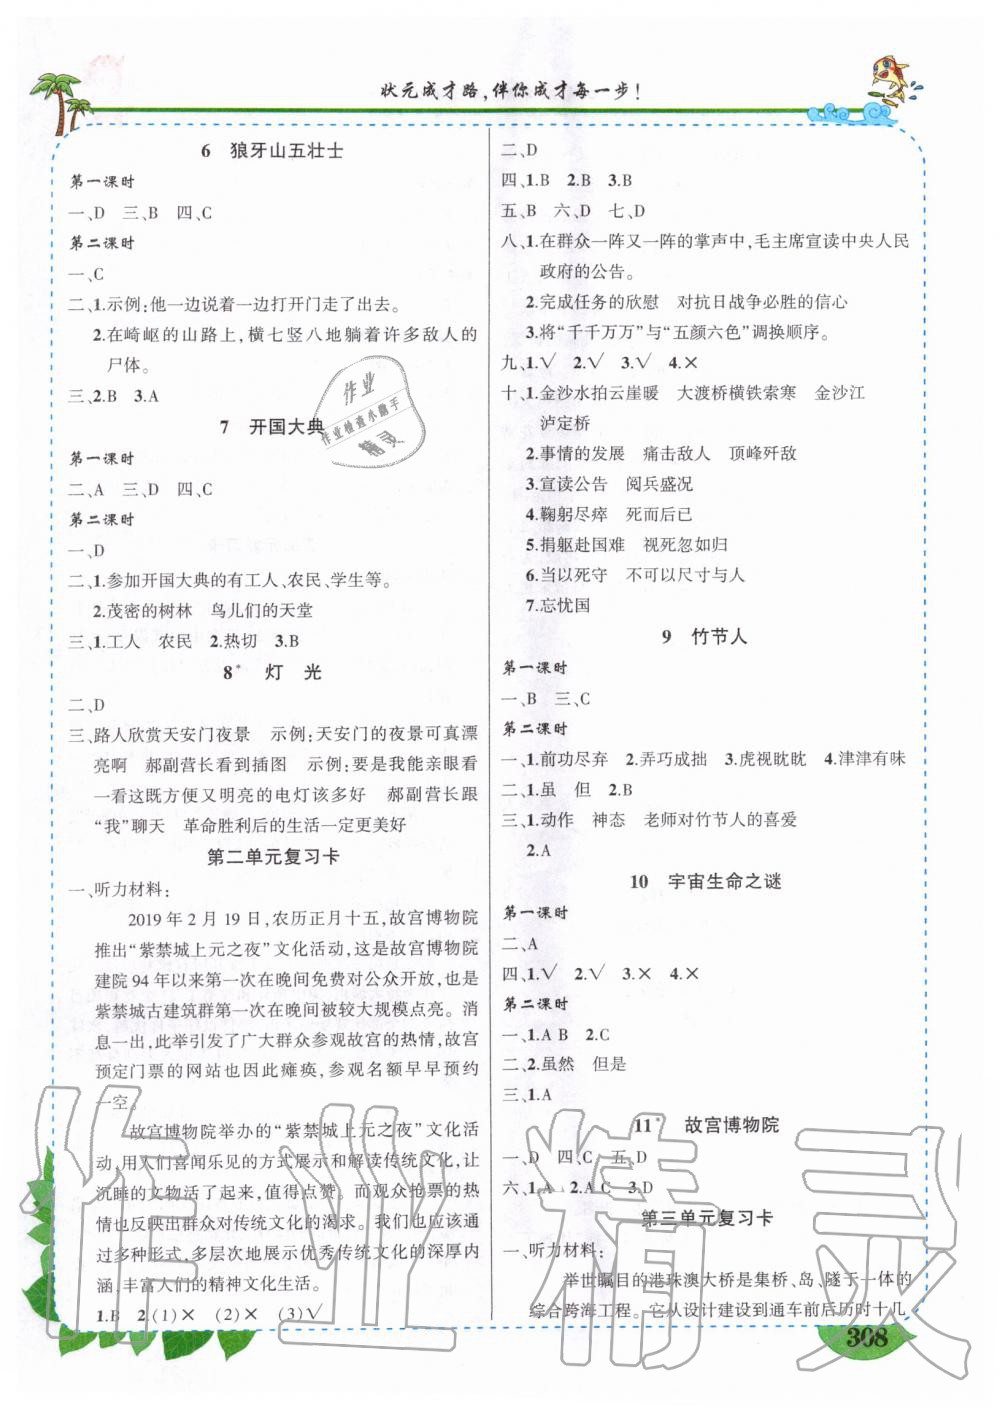 状元成才路,伴你成才每一步!
6 狼牙山五壮士
第一课时
一、D 三、B 四、C
第二课时
一、C
二、1.示例:他一边说着一边打开门走了出去。
2.在崎岖的山路上,横七竖八地躺着许多敌人的
尸体。
三、2.B 3.A
7 开国大典
第一课时
二、A 三、D 四、C
第二课时
一、D
二、1.参加开国大典的有工人、农民、学生等。
2.茂密的树林 鸟儿们的天堂
三、1.工人 农民 2.热切 3.B
8* 灯 光
二、D
三、路人欣赏天安门夜景 示例:天安门的夜景可真漂
亮啊 郝副营长看到插图 示例:要是我能亲眼看
一看这既方便又明亮的电灯该多好 郝副营长跟
“我”聊天 革命胜利后的生活一定更美好
第二单元复习卡
一、听力材料:
2019年2月19日,农历正月十五,故宫博物院
推出“紫禁城上元之夜”文化活动,这是故宫博物院
建院94年以来第一次在晚间免费对公众开放,也是
紫禁城古建筑群第一次在晚间被较大规模点亮。消
息一出,此举引发了广大群众参观故宫的热情,故宫
预定门票的网站也因此瘫痪,参观名额早早预约
一空。
故宫博物院举办的“紫禁城上元之夜”文化活
动,用人们喜闻乐见的方式展示和解读传统文化,让
沉睡的文物活了起来,值得点赞。而观众抢票的热
情也反映出群众对传统文化的渴求。我们也应该通
过多种形式,多层次地展示优秀传统文化的深厚内
涵,丰富人们的精神文化生活。
1.B 2.(1)× (2)× (3)√
二、D
四、1.B 2.B 3.B
五、B 六、D 七、D
八、1.在群众一阵又一阵的掌声中,毛主席宣读中央人民
政府的公告。
2.完成任务的欣慰 对抗日战争必胜的信心
3.将“千千万万”与“五颜六色”调换顺序。
九、1.√ 2.√ 3.√ 4.×
十、1.金沙水拍云崖暖 大渡桥横铁索寒 金沙江
泸定桥
2.事情的发展 痛击敌人 顶峰歼敌
3.宣读公告 阅兵盛况
4.鞠躬尽瘁 死而后已
5.捐躯赴国难 视死忽如归
6.当以死守 不可以尺寸与人
7.忘忧国
9 竹节人
第一课时
一、B 三、C
第二课时
一、1.前功尽弃 2.弄巧成拙 3.虎视眈眈 4.津津有味
二、1.虽 但 2.B
三、1.动作 神态 老师对竹节人的喜爱
2.A
10 宇宙生命之谜
第一课时
二、A
四、1.√ 2.√ 3.× 4.×
第二课时
一、1.A B 2.C
二、2.虽然 但是
三、1.A
11* 故宫博物院
一、D 四、C 五、D
六、1.A 2.A C 3.D
第三单元复习卡
一、听力材料:
举世瞩目的港珠澳大桥是集桥、岛、隧于一体的
综合跨海工程。它从设计建设到通车前后历时十几
308
作业
作业检查小助手
精灵
作业精灵